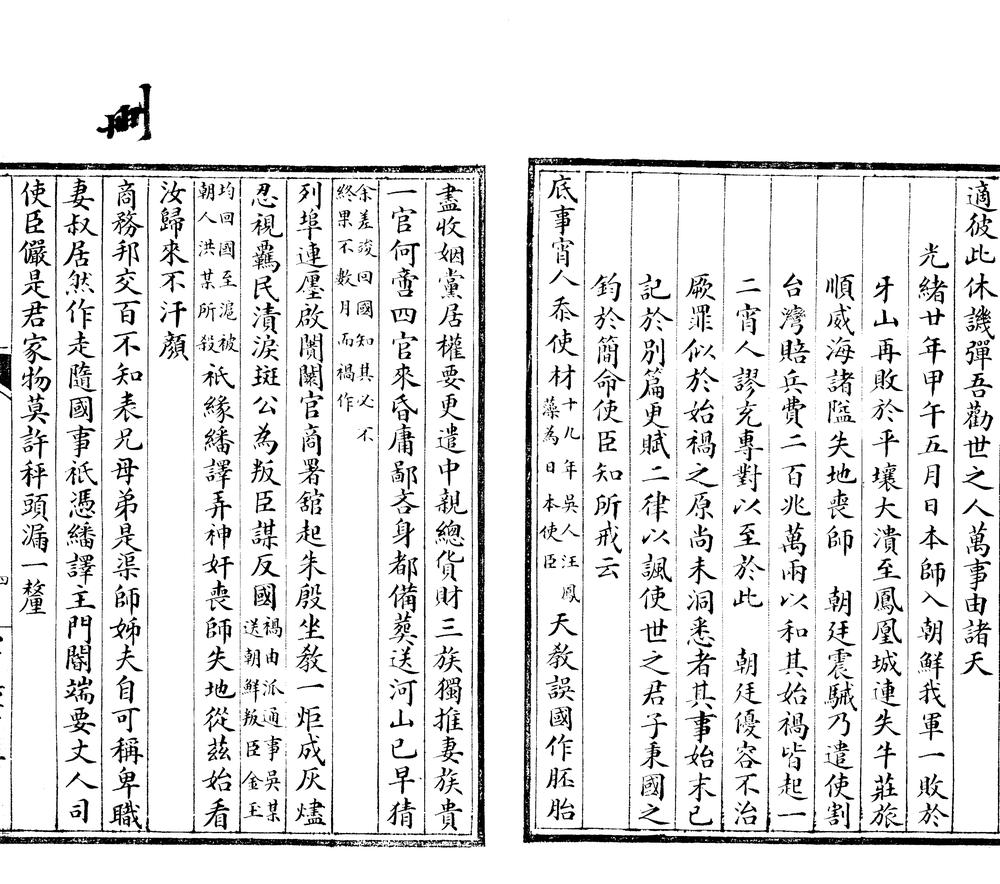 適彼此休譏彈吾勸世之人萬事由諸天
光緒廿年甲午五月日本師入朝鮮我軍一敗於
牙山再敗於平壤大潰至鳳凰城連失牛莊旅
順威海諸隘失地喪師　朝廷震駴乃遣使割
台灣賠兵費二百兆萬兩以和其始禍皆起一
二宵人謬充專對以至於此　朝廷優容不治
厥罪似於始禍之原尚未洞悉者其事始末已
記於別篇更賦二律以諷使世之君子秉國之
鈞於簡命使臣知所戒云
底事宵人忝使材十九年吳人汪鳳藻為日本使臣天敎誤國作胚胎
刪
盡收姻黨居權要更遣中親總貨財三族獨推妻族貴
一官何啻四官來昏庸鄙吝身都備葬送河山已早猜
余差竣回國知其必不終果不數月而禍作
列埠連廛啟閴闤官商署舘起朱殷坐敎一炬成灰燼
忍視羈民漬淚斑公為叛臣謀反國禍由派通事吳某送朝鮮叛臣金玉
均回國至滬被朝人洪某所殺祇緣繙譯弄神奸喪師失地從茲始看
汝歸來不汗顏
商務邦交百不知表兄母弟是渠師姊夫自可稱卑職
妻叔居然作走隨國事祇憑繙譯主門閽端要丈人司
使臣儼是君家物莫許秤頭漏一釐